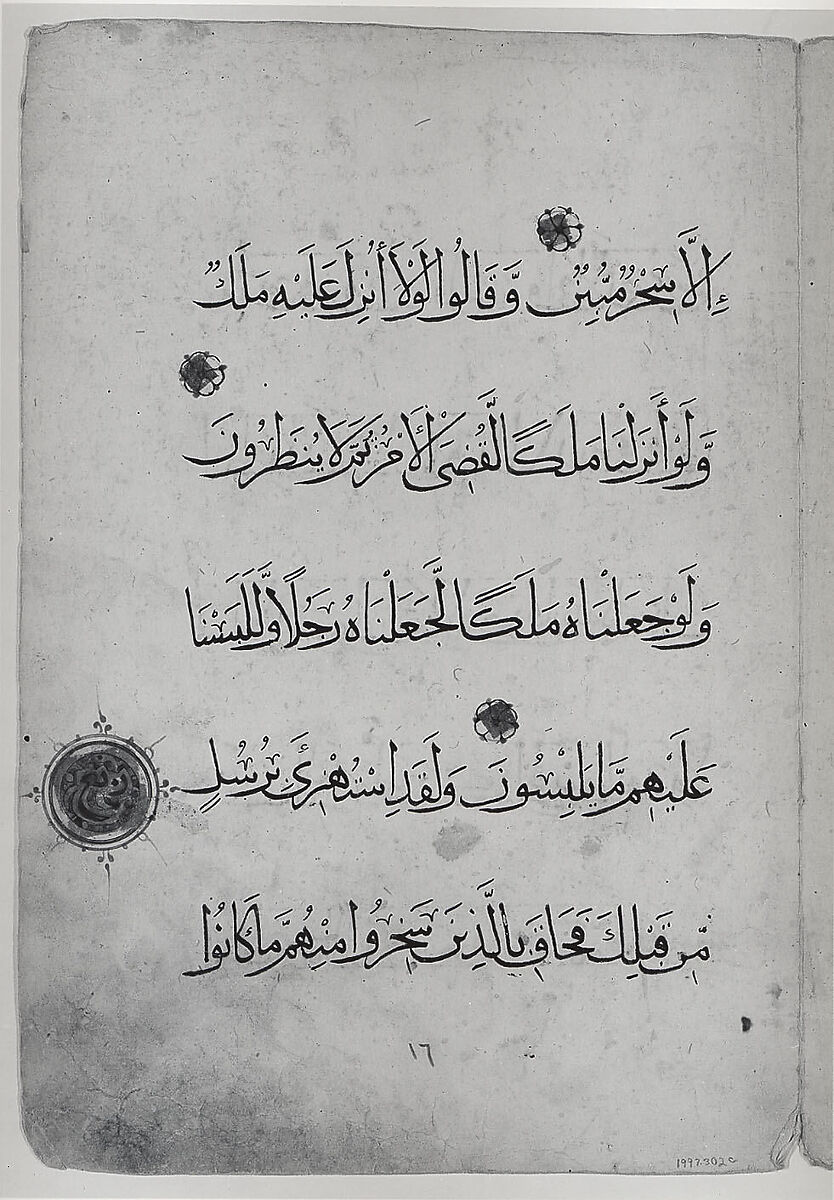 إِلَّا سِحْرٌ مُّبِينٌ وَّقَالُوا لَوْلَا أُنزِلَ عَلَيْهِ مَلَكٌ
وَّلَوْ أَنزَلْنَا مَلَكًا لَّقُضِيَ الْأَمْرُ ثُمَّ لَا يُنظَرُونَ
وَلَوْ جَعَلْنَاهُ مَلَكًا لَّجَعَلْنَاهُ رَجُلًا وَّلَلَبَسْنَا
عَلَيْهِم مَّا يَلْبِسُونَ وَلَقَدِ اسْتُهْزِئَ بِرُسُلٍ
مِّن قَبْلِكَ فَحَاقَ بِالَّذِينَ سَخِرُوا مِنْهُم مَّا كَانُوا
١٦
1997.302c